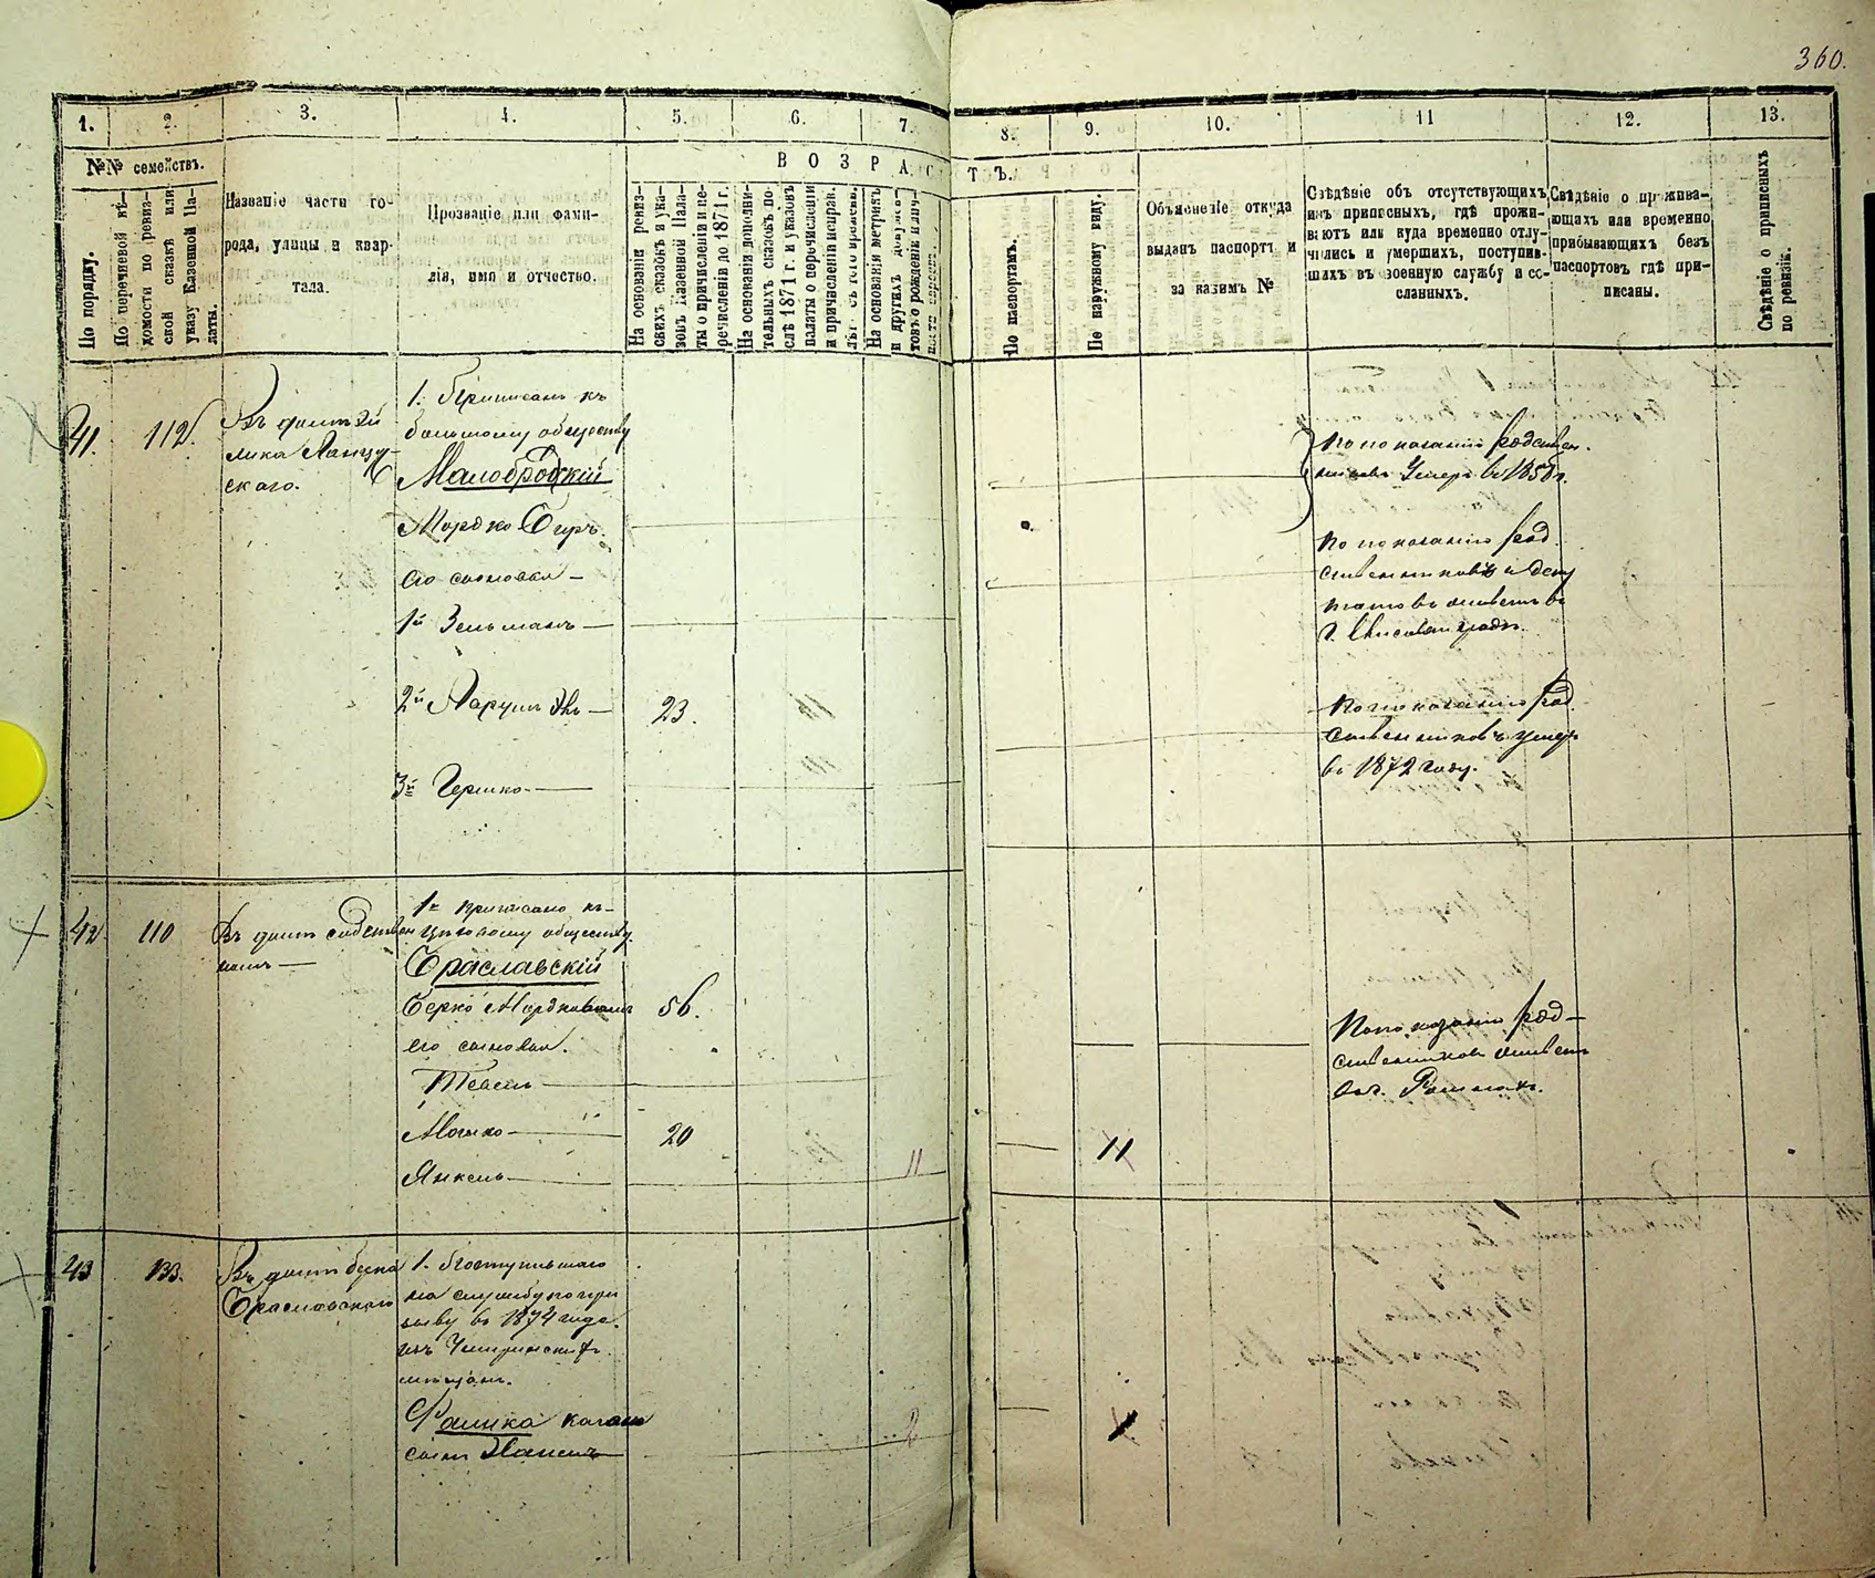 360.
1.
2.
3.
4.
5.
6.
7.
8.
9.
10.
11
12.
13.
№№ семействъ.
ВОЗРАСТЪ.
По порядку.
По перечневой вѣ-
домости по ревиз-
ской сказкѣ или
указу Казенной Па-
латы.
Названіе части го-
рода, улицы и квар-
тала.
Прозваніе или фами-
лія, имя и отчество.
На основаніи ревиз-
скихъ сказокъ и ука-
зовъ Казенной Пала-
ты о причисленіи и пе-
речисленіи до 1871 г.
На основаніи дополни-
тельныхъ сказокъ по-
слѣ 1871 г. и указовъ
палаты о перечисленіи
и причисленіи
На основаніи метрикъ
и другихъ
товъ о рожденіи или
По паспортамъ.
По наружному виду.
Объясненіе откуда
выданъ паспортъ и
за какимъ №
Свѣдѣніе объ отсутствующихъ
изъ приписныхъ, гдѣ прожи-
ваютъ или куда временно отлу-
чились и умершихъ, поступив-
шихъ въ военную службу и со-
сланныхъ.
Свѣдѣніе о прожива-
ющихъ или временно
прибывающихъ безъ
паспортовъ гдѣ при-
писаны.
Свѣдѣніе о приписныхъ
по ревизіи.
41.
112.
Въ домѣ
скаго.
1. Приписанъ къ
большому обществу
Малобродскій
Мордко Беръ.
его сыновья —
1й Зельманъ —
2й 23.
3й Гершко —
По показанію родствен-
никовъ умеръ въ 1850 г.
По показанію род
ственниковъ и депу
татовъ живетъ въ
г. Елисаветградѣ.
По показанію род
ственниковъ умеръ
въ 1872 году.
42
110
Въ домѣ собствен
номъ —
1. приписано къ
цеховому обществу.
Браславскій
Берко Мордковичъ 56.
его сыновья.
Тевель —
Мошко — 20
Янкель — 11 11
По показанію род-
ственниковъ живетъ
43
133.
Въ домѣ Берка
Браславскаго
1. Поступившаго
на службу по при
зыву въ 1874 года.
изъ Чигиринскихъ
мѣщанъ.
Фалика
сынъ Хаимъ 2